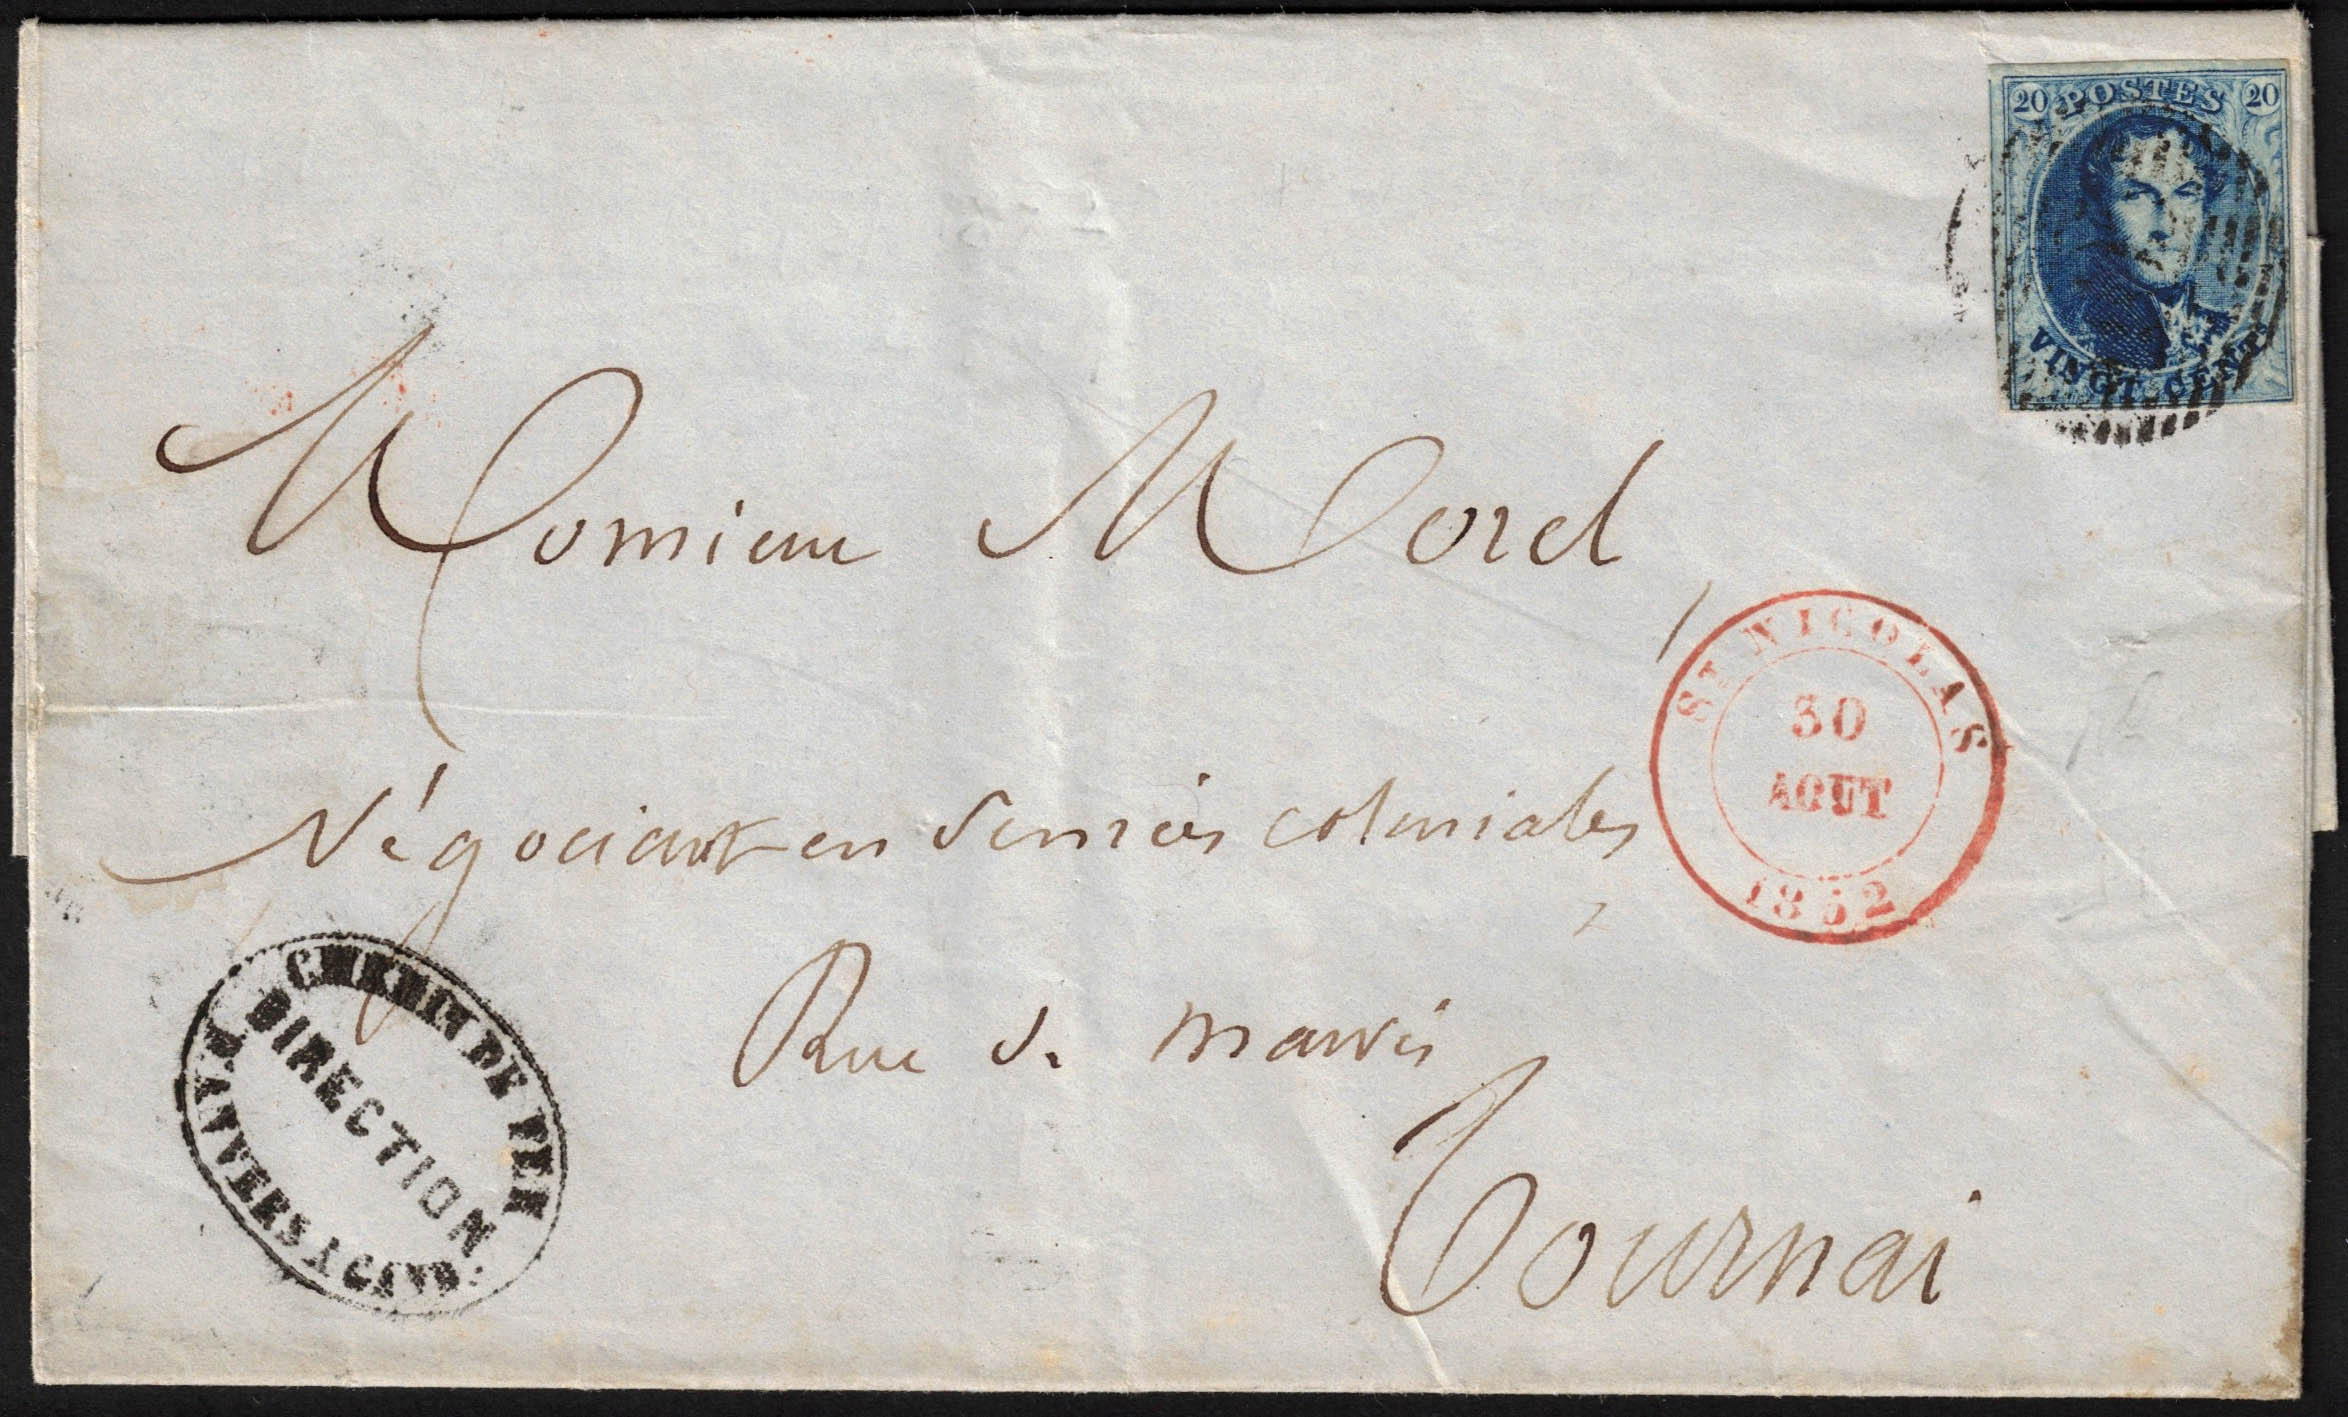 20 POSTES 20
VINGT CENTS
Monsieur Morel
ST NICOLAS
30
AOUT
1852
Négociant en denrées coloniales
Rue de
Tournai
CHEMIN DE FER
DIRECTION
D'ANVERS A GAND